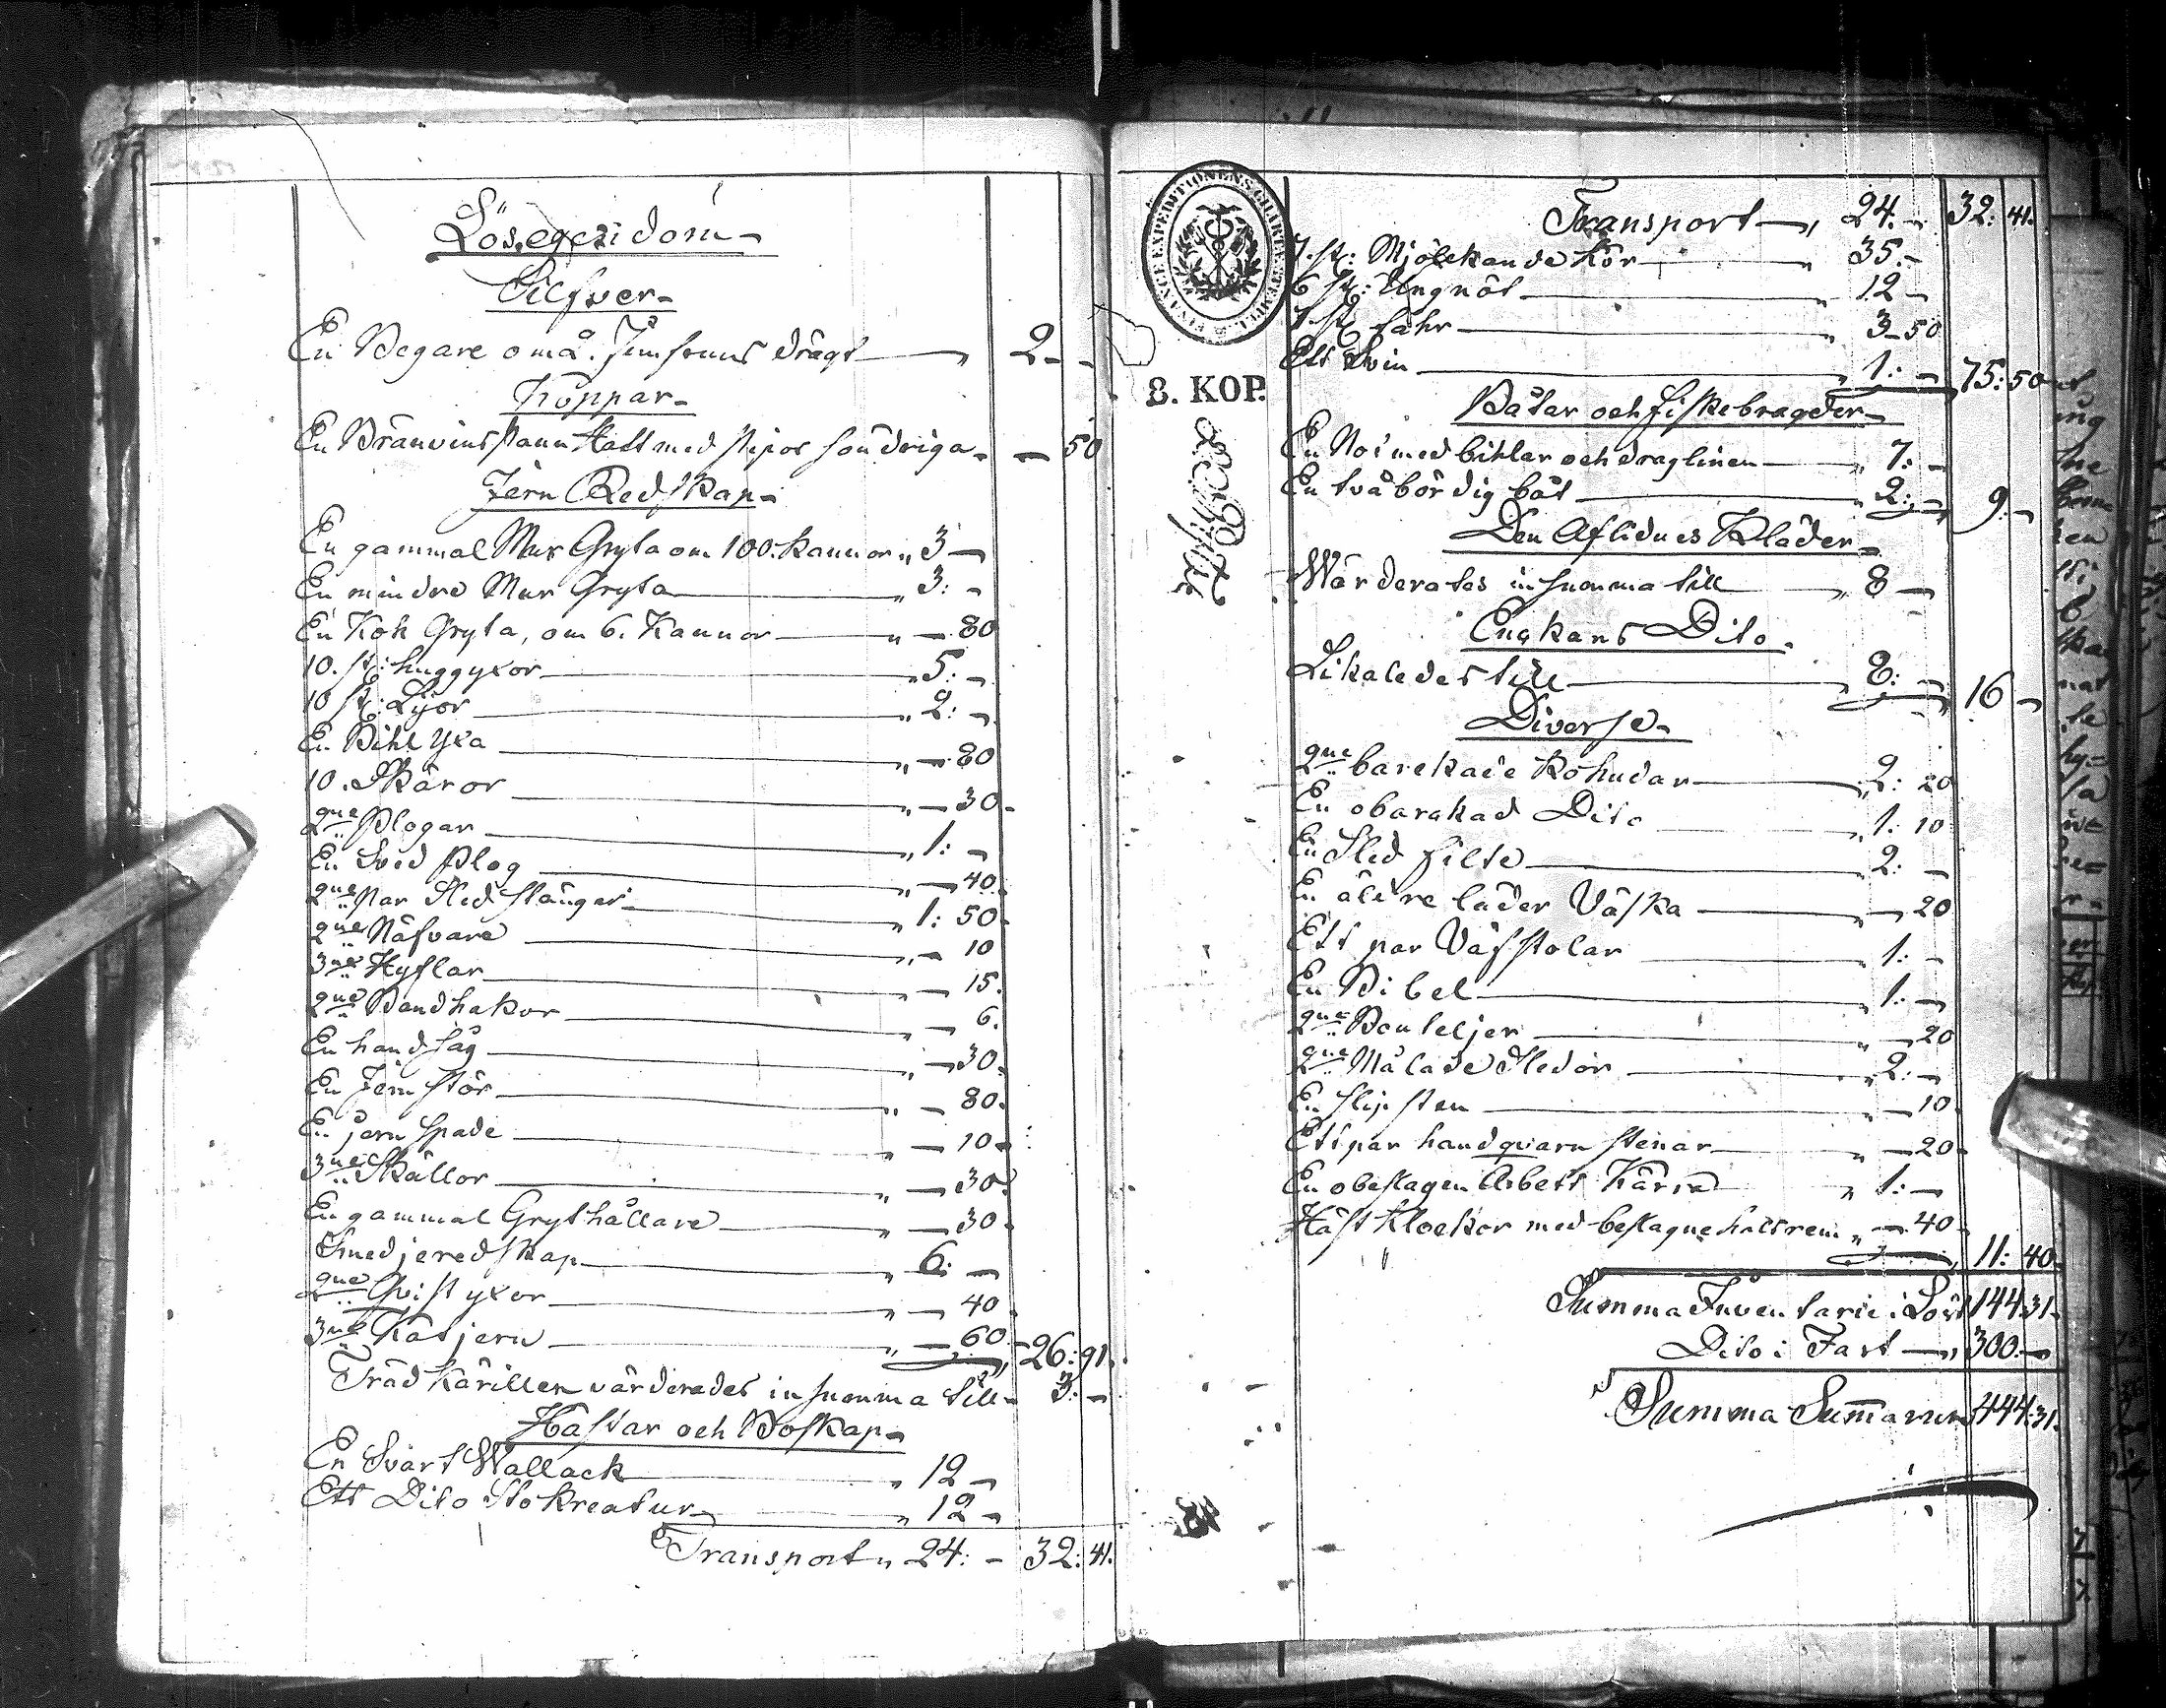 Lösegendom
Silfver
En Begare om 2. Jumfrurs drägt 2 -
Koppar
En Bränvins Pann Hatt med Pipor söndriga - 50
Jern Redskap
En gammal Mur Gryta om 100. Kannor " 3 -
En mindre Mur Gryta " 3: -
En Kok Gryta, om 6. Kannor " - 80
10. st: huggyxor " 5: -
10 st: Lijor " 2: -
En Bihl Yxa " - 80
10. Skäror " - 30
2ne Plogar " 1: -
En Svid Plog " - 40
2ne Par Sled stänger " 1: 50
2ne Näfvare " - 10
3ne Hyflar " - 15.
2ne Bandhakor " - 6.
En handsåg " - 30.
En Jern stör " - 80.
En jern spade " - 10
3ne Skällor " - 30
En gammal Grythållare " - 30
Smedjeredskap " 6: -
2ne Qvistyxor " - 40
3ne Katjern " - 60 - 26: 91.
Träd Kärillen värderades in summa till - 3: -
Hästar och Boskap
En Svart Wallack " 12 -
Ett Dito Stokreatur " 12 -
Transport " 24: - 32: 41.
FINANCE EXPEDITIONENS CHARTÆ STEMPEL
8. KOP.
Transport " 24. - 32: 41.
7. st: Mjölckande Kor " 35. -
6 st: Ungnöt " 12 -
7. st får " 3 - 50
Ett Svin " 1: - 75: 50
Båtar och fiskebragder
En Not med bihlar och draglinen " 7: -
En tvåbördig båt " 2: - 9: -
Den Aflidnes Kläder
Wärderates in summa till " 8 -
Enkans Dito
Likaledes till " 8: - 16 -
Diverse
2ne barekade Kohudar " 2: 20
En obarakad Dito " 1: 10
En Sled filte " 2: -
En äldre läder Väska " - 20
Ett par Väfstolar " 1: -
En Bibel " 1: -
2ne Bouteljer " - 20
2ne Målade Slædor " 2: -
En slipsten " - 10
Ett par handqvarn stenar " - 20
En obeslagen Arbets Kärra " 1: -
Häst Klockor med beslagne halsrem " - 40
11: 40
Summa Inventarie i Löst 144: 31
Dito i Fast " 300: -
Summa Summarum 444: 31.